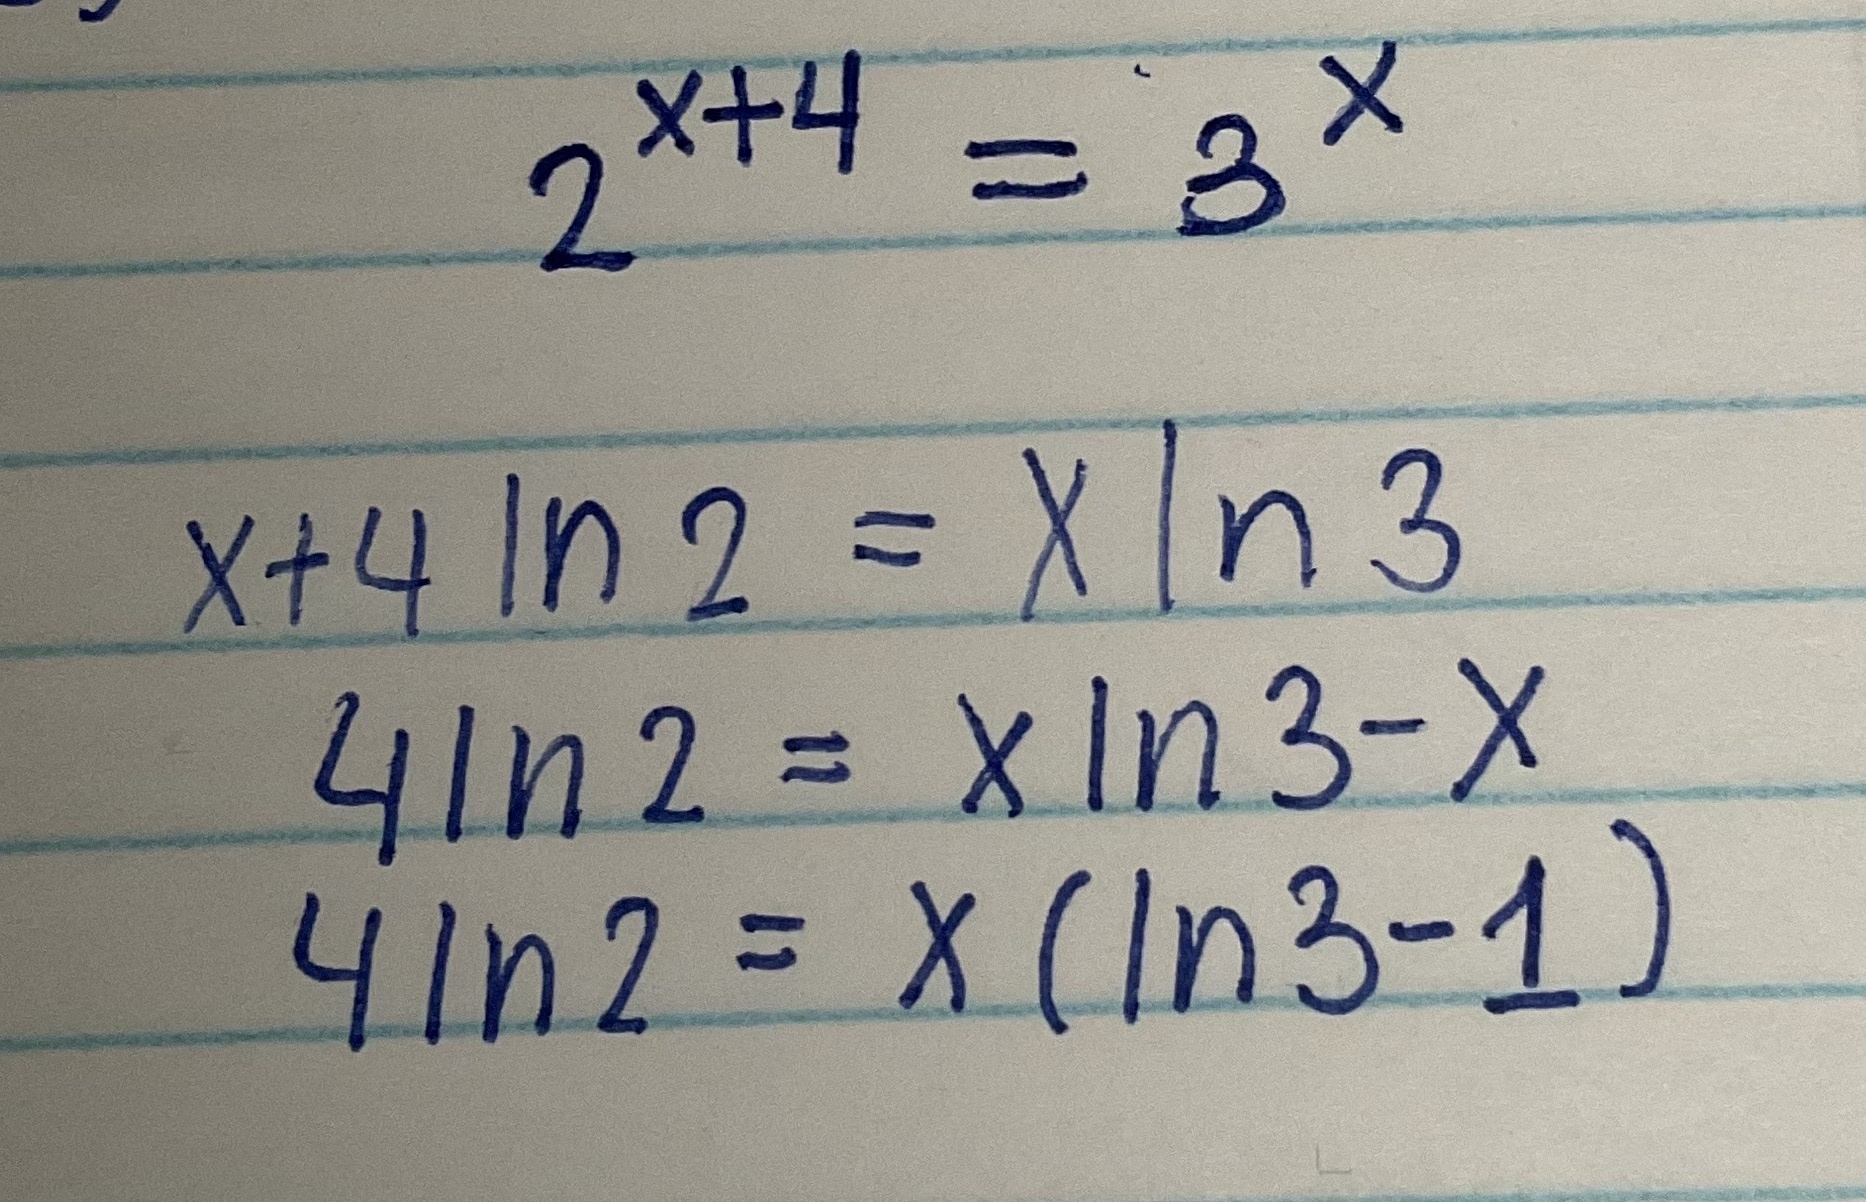 2^{x+4} = 3^x
x+4 ln 2 = x ln 3
4 ln 2 = x ln 3 - x
4 ln 2 = x (ln 3 - 1)